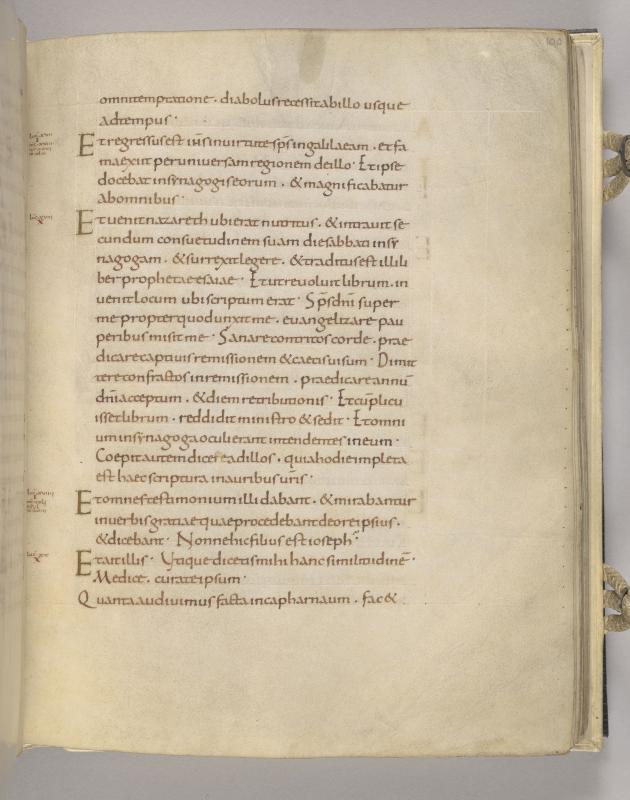 100
omnitemptatione · diabolus recessit ab illo usque
ad tempus ·
Et regressus est ihs in virtute sps in galilaeam · et fa
ma exiit per universam regionem de illo · Et ipse
docebat in synagogis eorum · & magnificabatur
ab omnibus ·
Et venit nazareth ubi erat nutritus · & intravit se
cundum consuetudinem suam die sabbati in sy
nagogam · & surrexit legere · & traditus est illi li
ber prophetae esaiae · Et ut revoluit librum · in
venit locum ubi scriptum erat · Sps dni super
me propter quod unxit me · evangelizare pau
peribus misit me · Sanare contritos corde · prae
dicare captivis remissionem & caecis uisum · Dimit
tere confractos in remissionem · praedicare annu
dni acceptum · & diem retributionis · Et cu plicu
isset librum · reddidit ministro & sedit · Et omni
um in synagoga oculi erant intendentes in eum ·
Coepit autem dicere ad illos · quia hodie impleta
est haec scriptura in auribus uris ·
Et omnes testimonium illi dabant · & mirabantur
in verbis gratiae quae procedebant de ore ipsius ·
& dicebant · Nonne hic filius est ioseph ·
Et ait illis · Utique dicetis mihi hanc similitudinē ·
Medice · cura te ipsum ·
Quanta audivimus facta in capharnaum · fac &